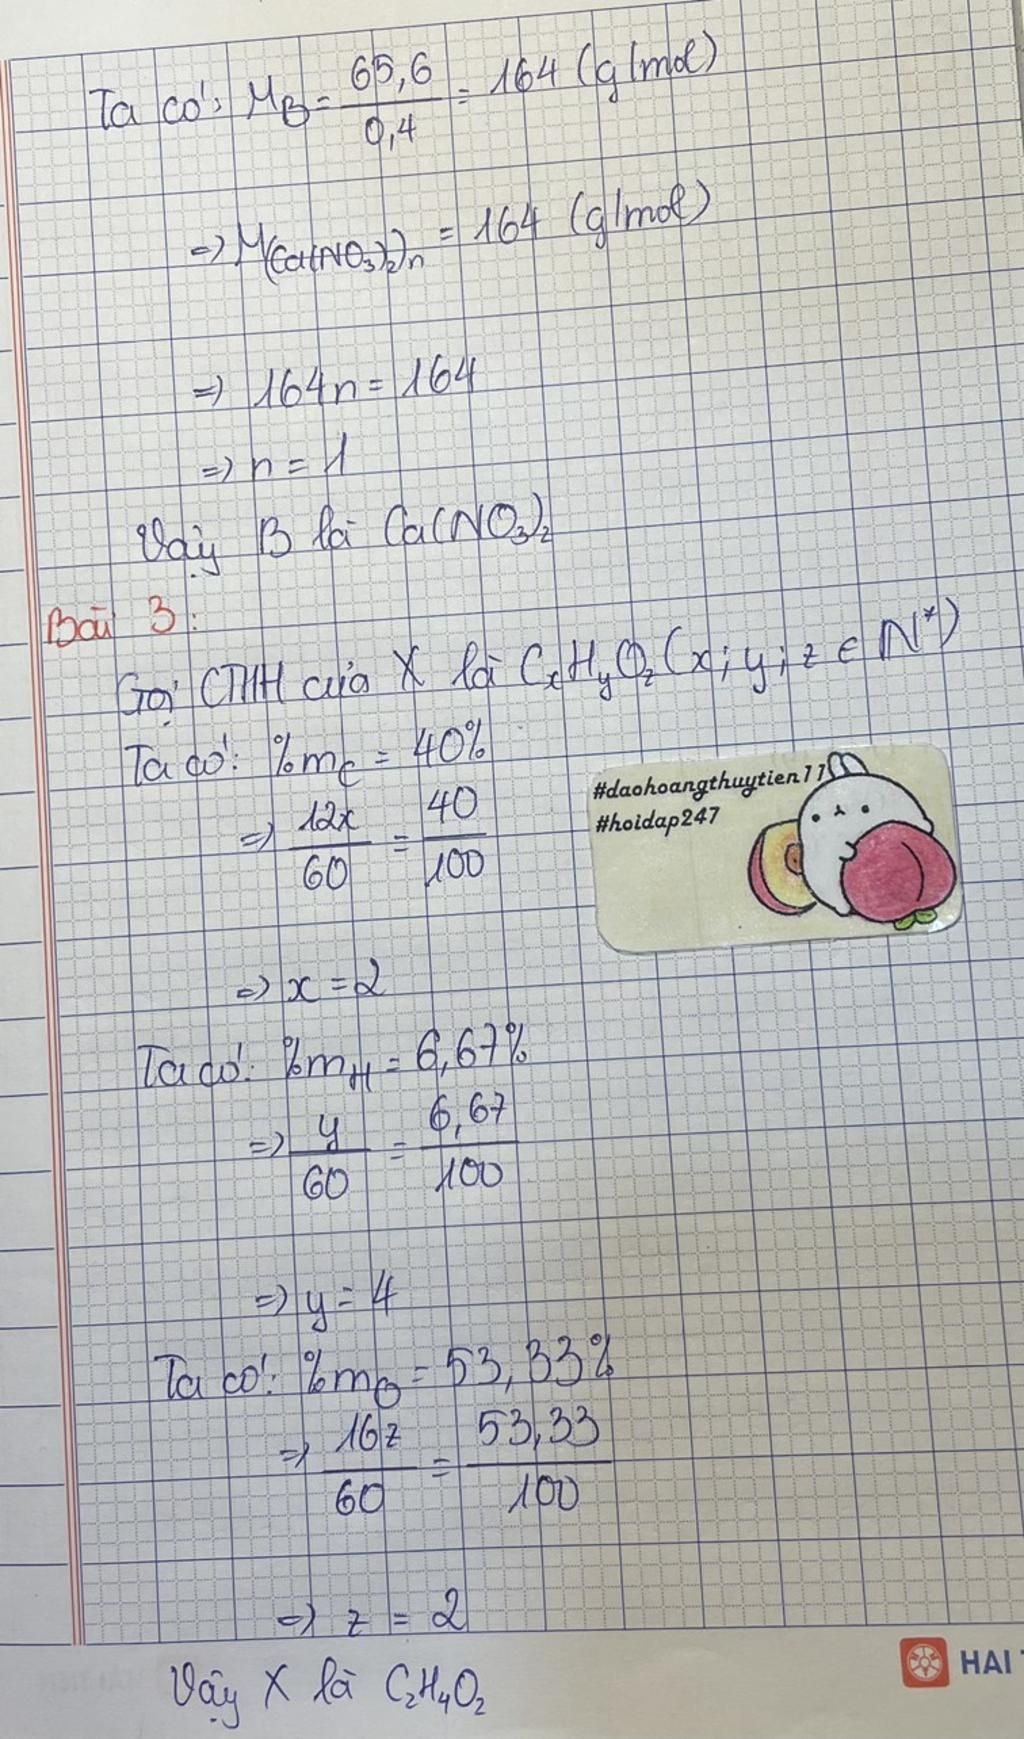 Ta có: M_B = 65,6/0,4 = 164 (g/mol)
=> M_(Ca(NO₃)₂)n = 164 (g/mol)
=> 164n = 164
=> n = 1
Vậy B là Ca(NO₃)₂
Bài 3:
Gọi CTHH của X là CₓHᵧO_z (x; y; z ∈ N*)
Ta có: %m_C = 40%
=> 12x/60 = 40/100
#daohoangthuytien11
#hoidap247
=> x = 2
Ta có: %m_H = 6,67%
=> y/60 = 6,67/100
=> y = 4
Ta có: %m_O = 53,33%
=> 16z/60 = 53,33/100
=> z = 2
Vậy X là C₂H₄O₂
HAI